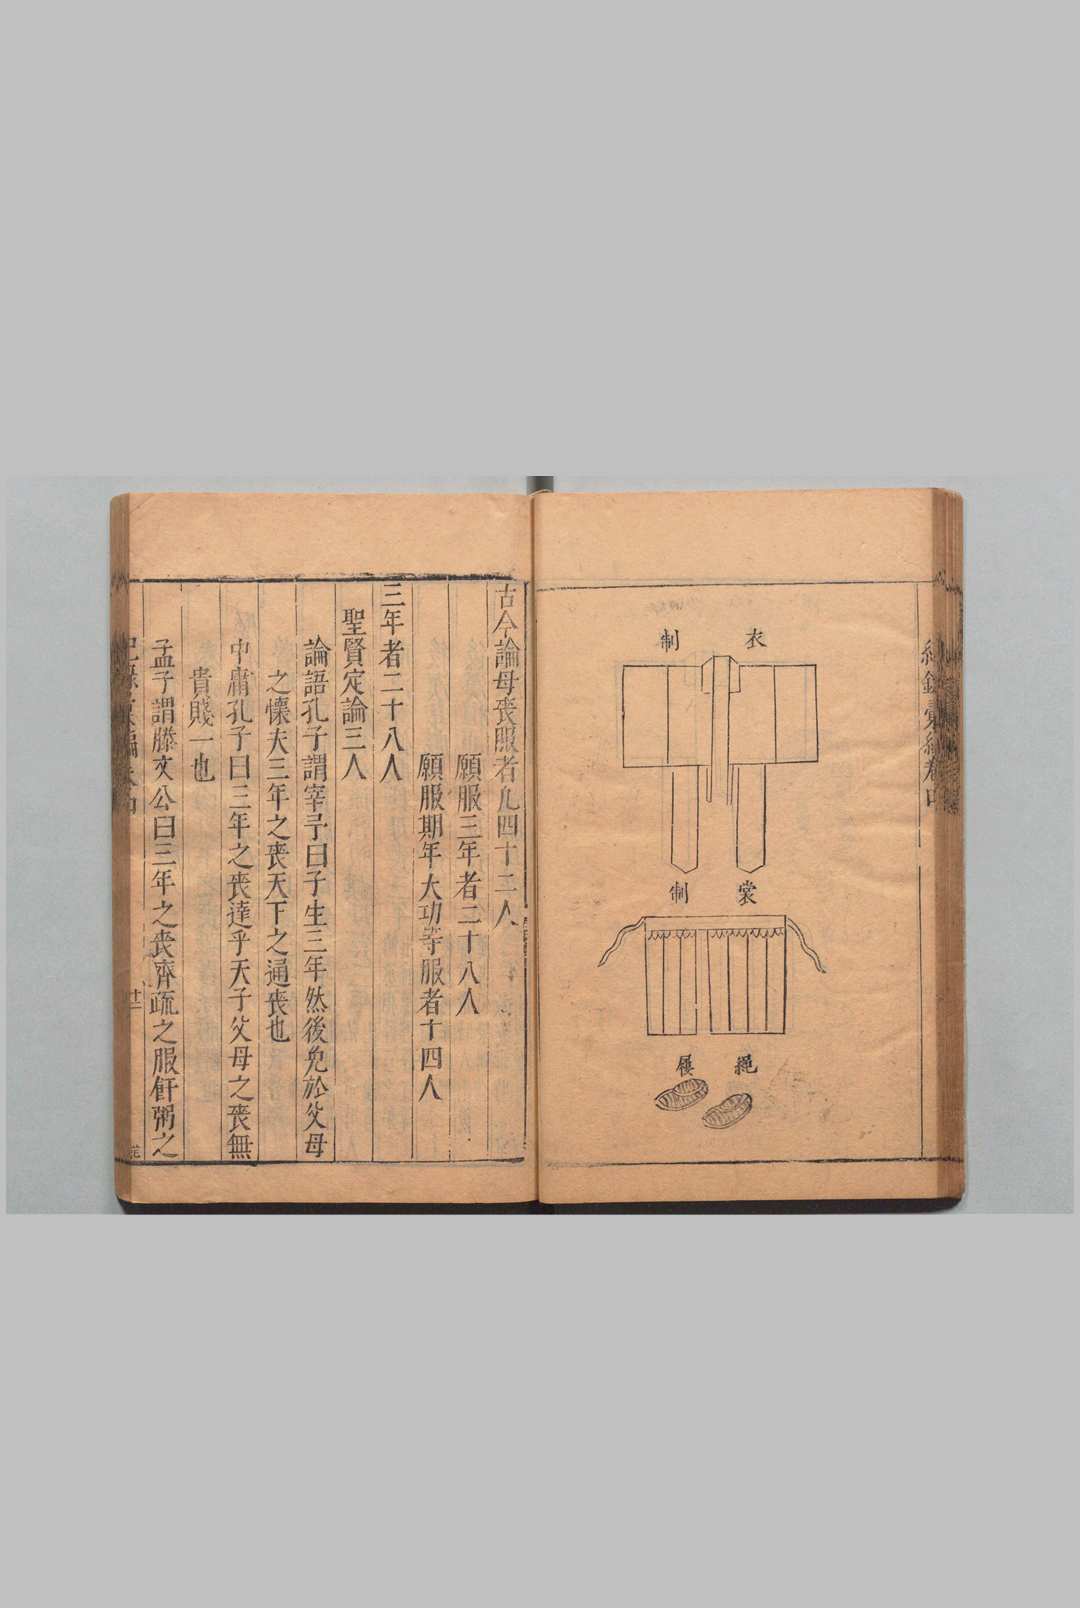 紀錄彙編卷四
衣制
裳制
繩屨
古今論母喪服者凡四十二人
願服三年者二十八人
願服期年大功等服者十四人
三年者二十八人
聖賢定論三人
論語孔子謂宰予曰子生三年然後免於父母
之懷夫三年之喪天下之通喪也
中庸孔子曰三年之喪達乎天子父母之喪無
貴賤一也
孟子謂滕文公曰三年之喪齊疏之服飦粥之
紀錄彙編卷四
廿二